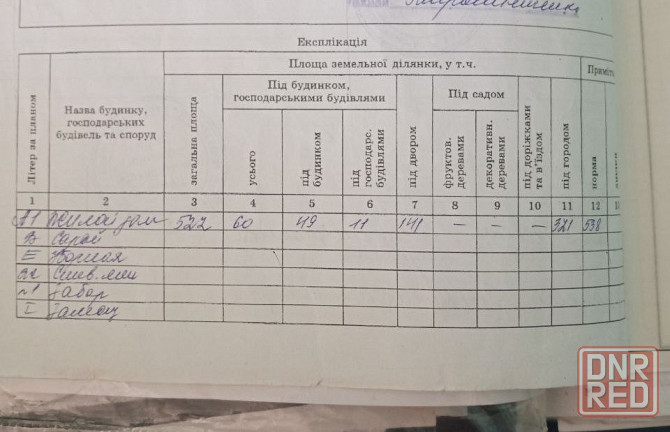 Експлікація
Літер за планом
Назва будинку, господарських будівель та споруд
Площа земельної ділянки, у т.ч.
загальна площа
Під будинком, господарськими будівлями
усього
під будинком
під господарс. будівлями
під двором
Під садом
фруктов. деревами
декоративн. деревами
під доріжками та в'їздом
під городом
норма
1 2 3 4 5 6 7 8 9 10 11 12
А1 Жилой дом 522 60 49 11 141 — — — 321 538
В Сарай
Е
Забор
I
DNR
RED